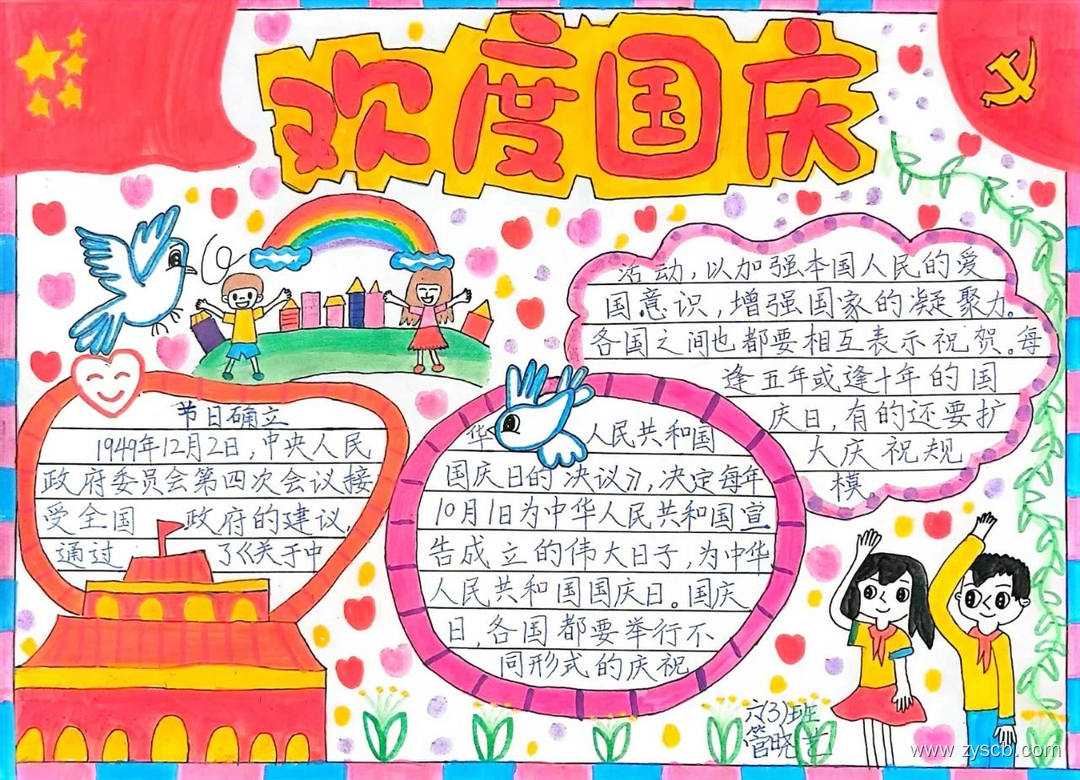 欢度国庆
节日确立
1949年12月2日，中央人民
政府委员会第四次会议接
受全国 政府的建议，
通过 了《关于中
华 人民共和国
国庆日的决议》，决定每年
10月1日为中华人民共和国宣
告成立的伟大日子，为中华
人民共和国国庆日。国庆
日，各国都要举行不
同形式的庆祝
活动，以加强本国人民的爱
国意识，增强国家的凝聚力。
各国之间也都要相互表示祝贺。每
逢五年或逢十年的国
庆日，有的还要扩
大庆祝规
模。
六(3)班
管晓艺
www.zyscb.com